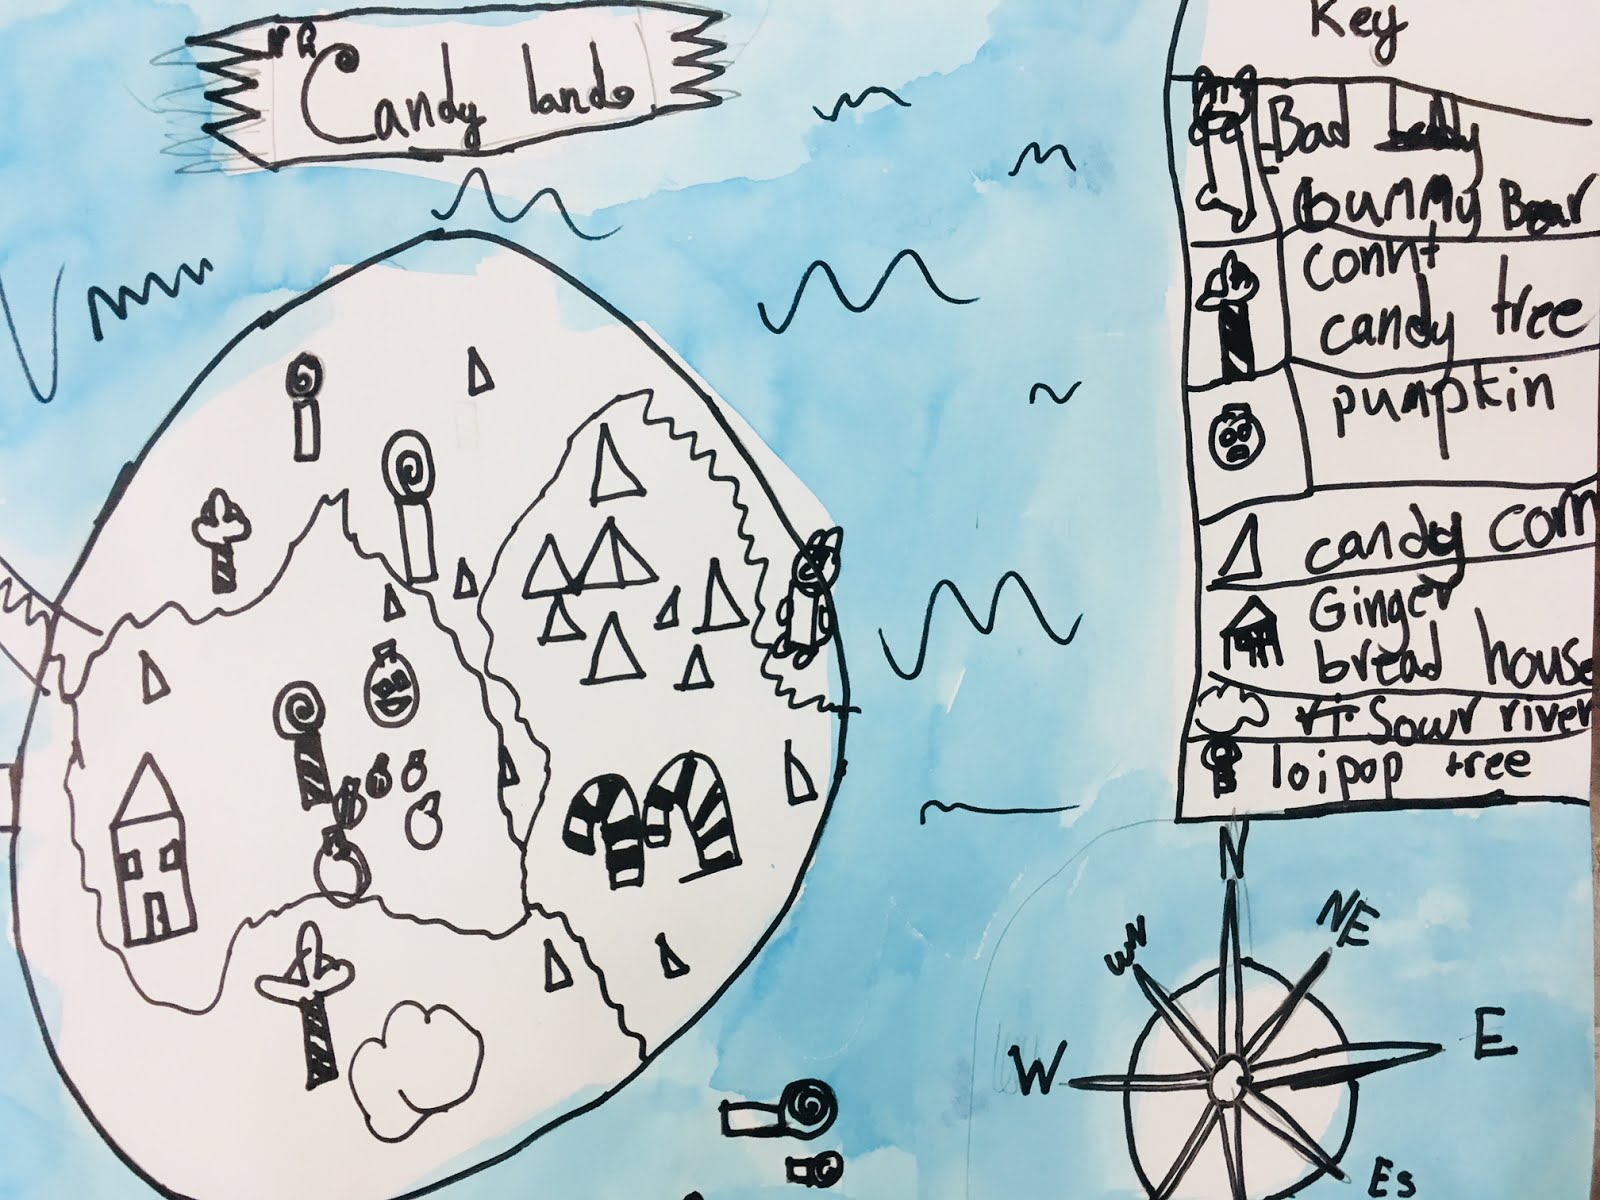 Candy land
Key
Bad
Gummy Bear
connt
candy tree
pumpkin
candy corn
Ginger
bread house
Sowr river
loipop tree
N
NE
WN
W
E
Es